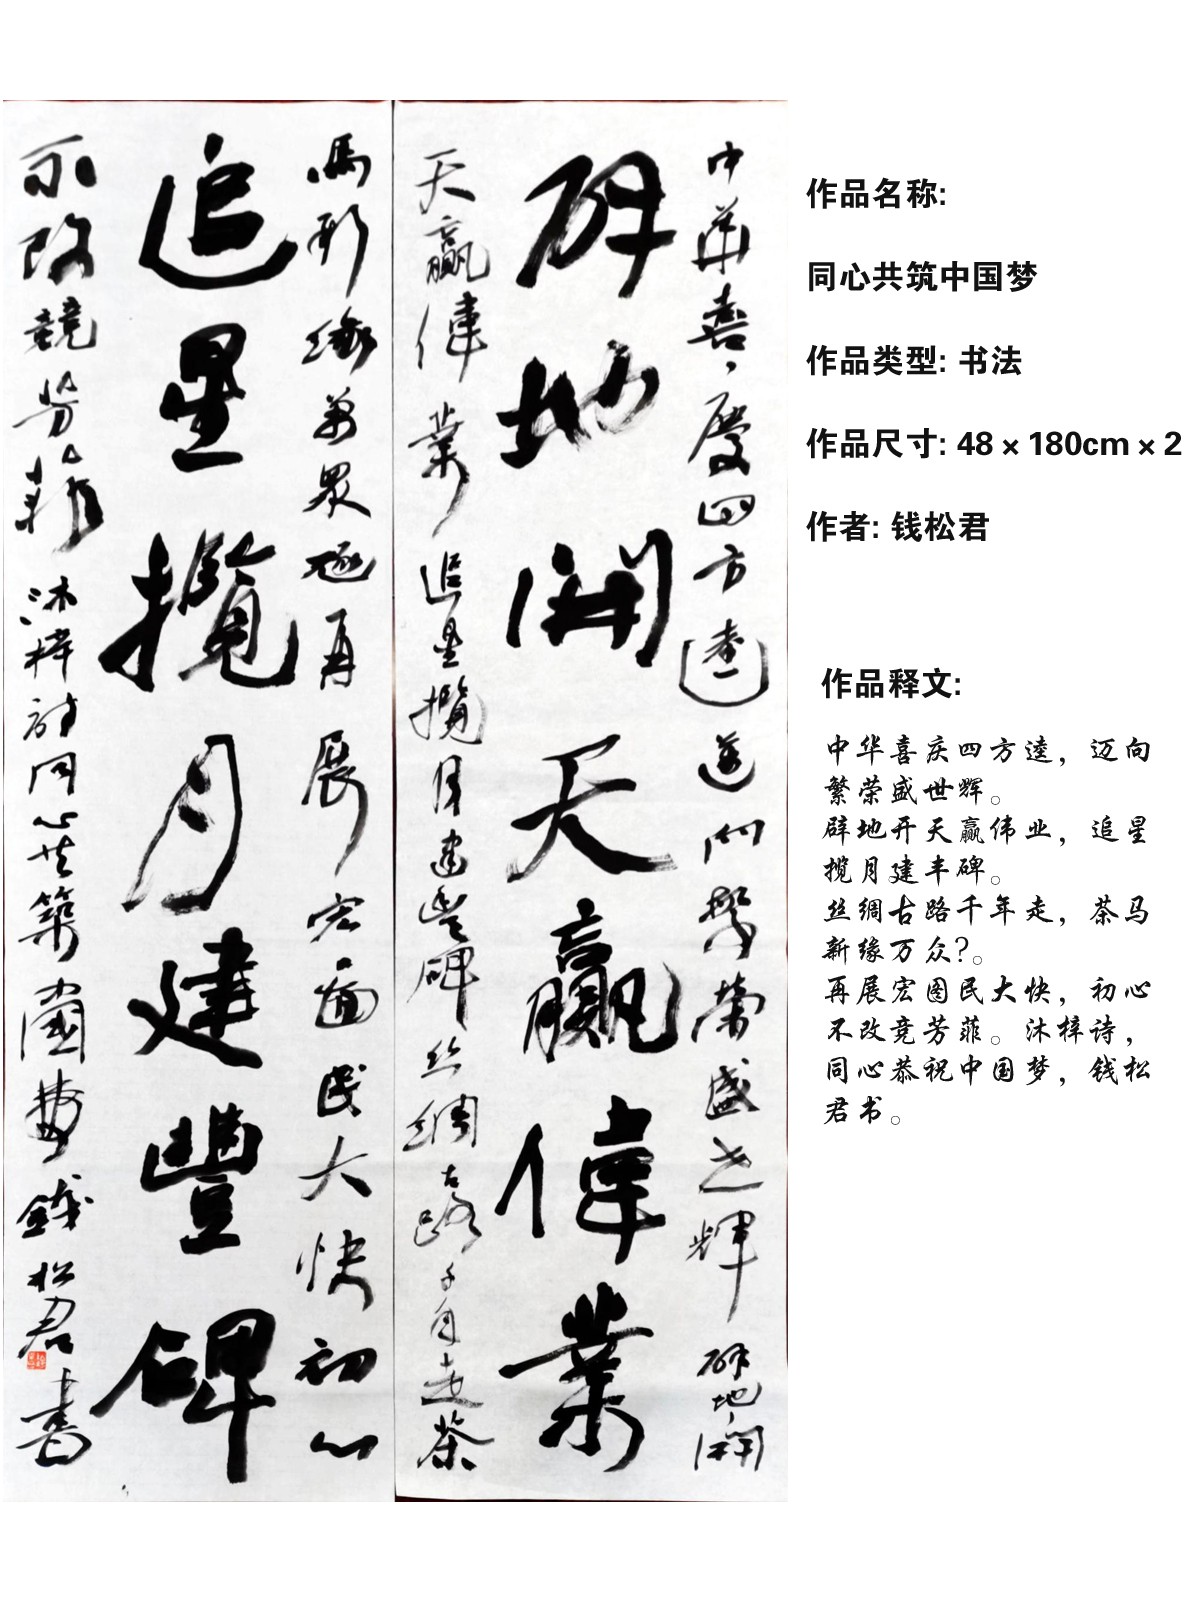 中華喜慶四方逵邁向繁榮盛世輝辟地開
辟地開天贏偉業
天贏偉業追星攬月建豐碑絲綢古路千年走茶
馬新緣萬眾再展宏圖民大快初心
追星攬月建豐碑
不改競芳菲沐梓詩同心共築國夢錢松君書
作品名称:
同心共筑中国梦
作品类型: 书法
作品尺寸: 48×180cm×2
作者: 钱松君
作品释文:
中华喜庆四方逵，迈向
繁荣盛世辉。
辟地开天赢伟业，追星
揽月建丰碑。
丝绸古路千年走，茶马
新缘万众?。
再展宏图民大快，初心
不改竞芳菲。沐梓诗，
同心恭祝中国梦，钱松
君书。